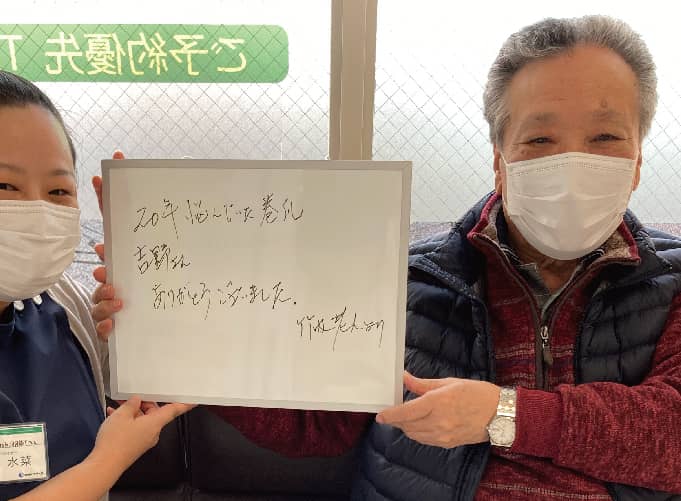 ご予約優先 T
20年悩んだ巻爪
吉野さん
ありがとうございました。
より
水菜